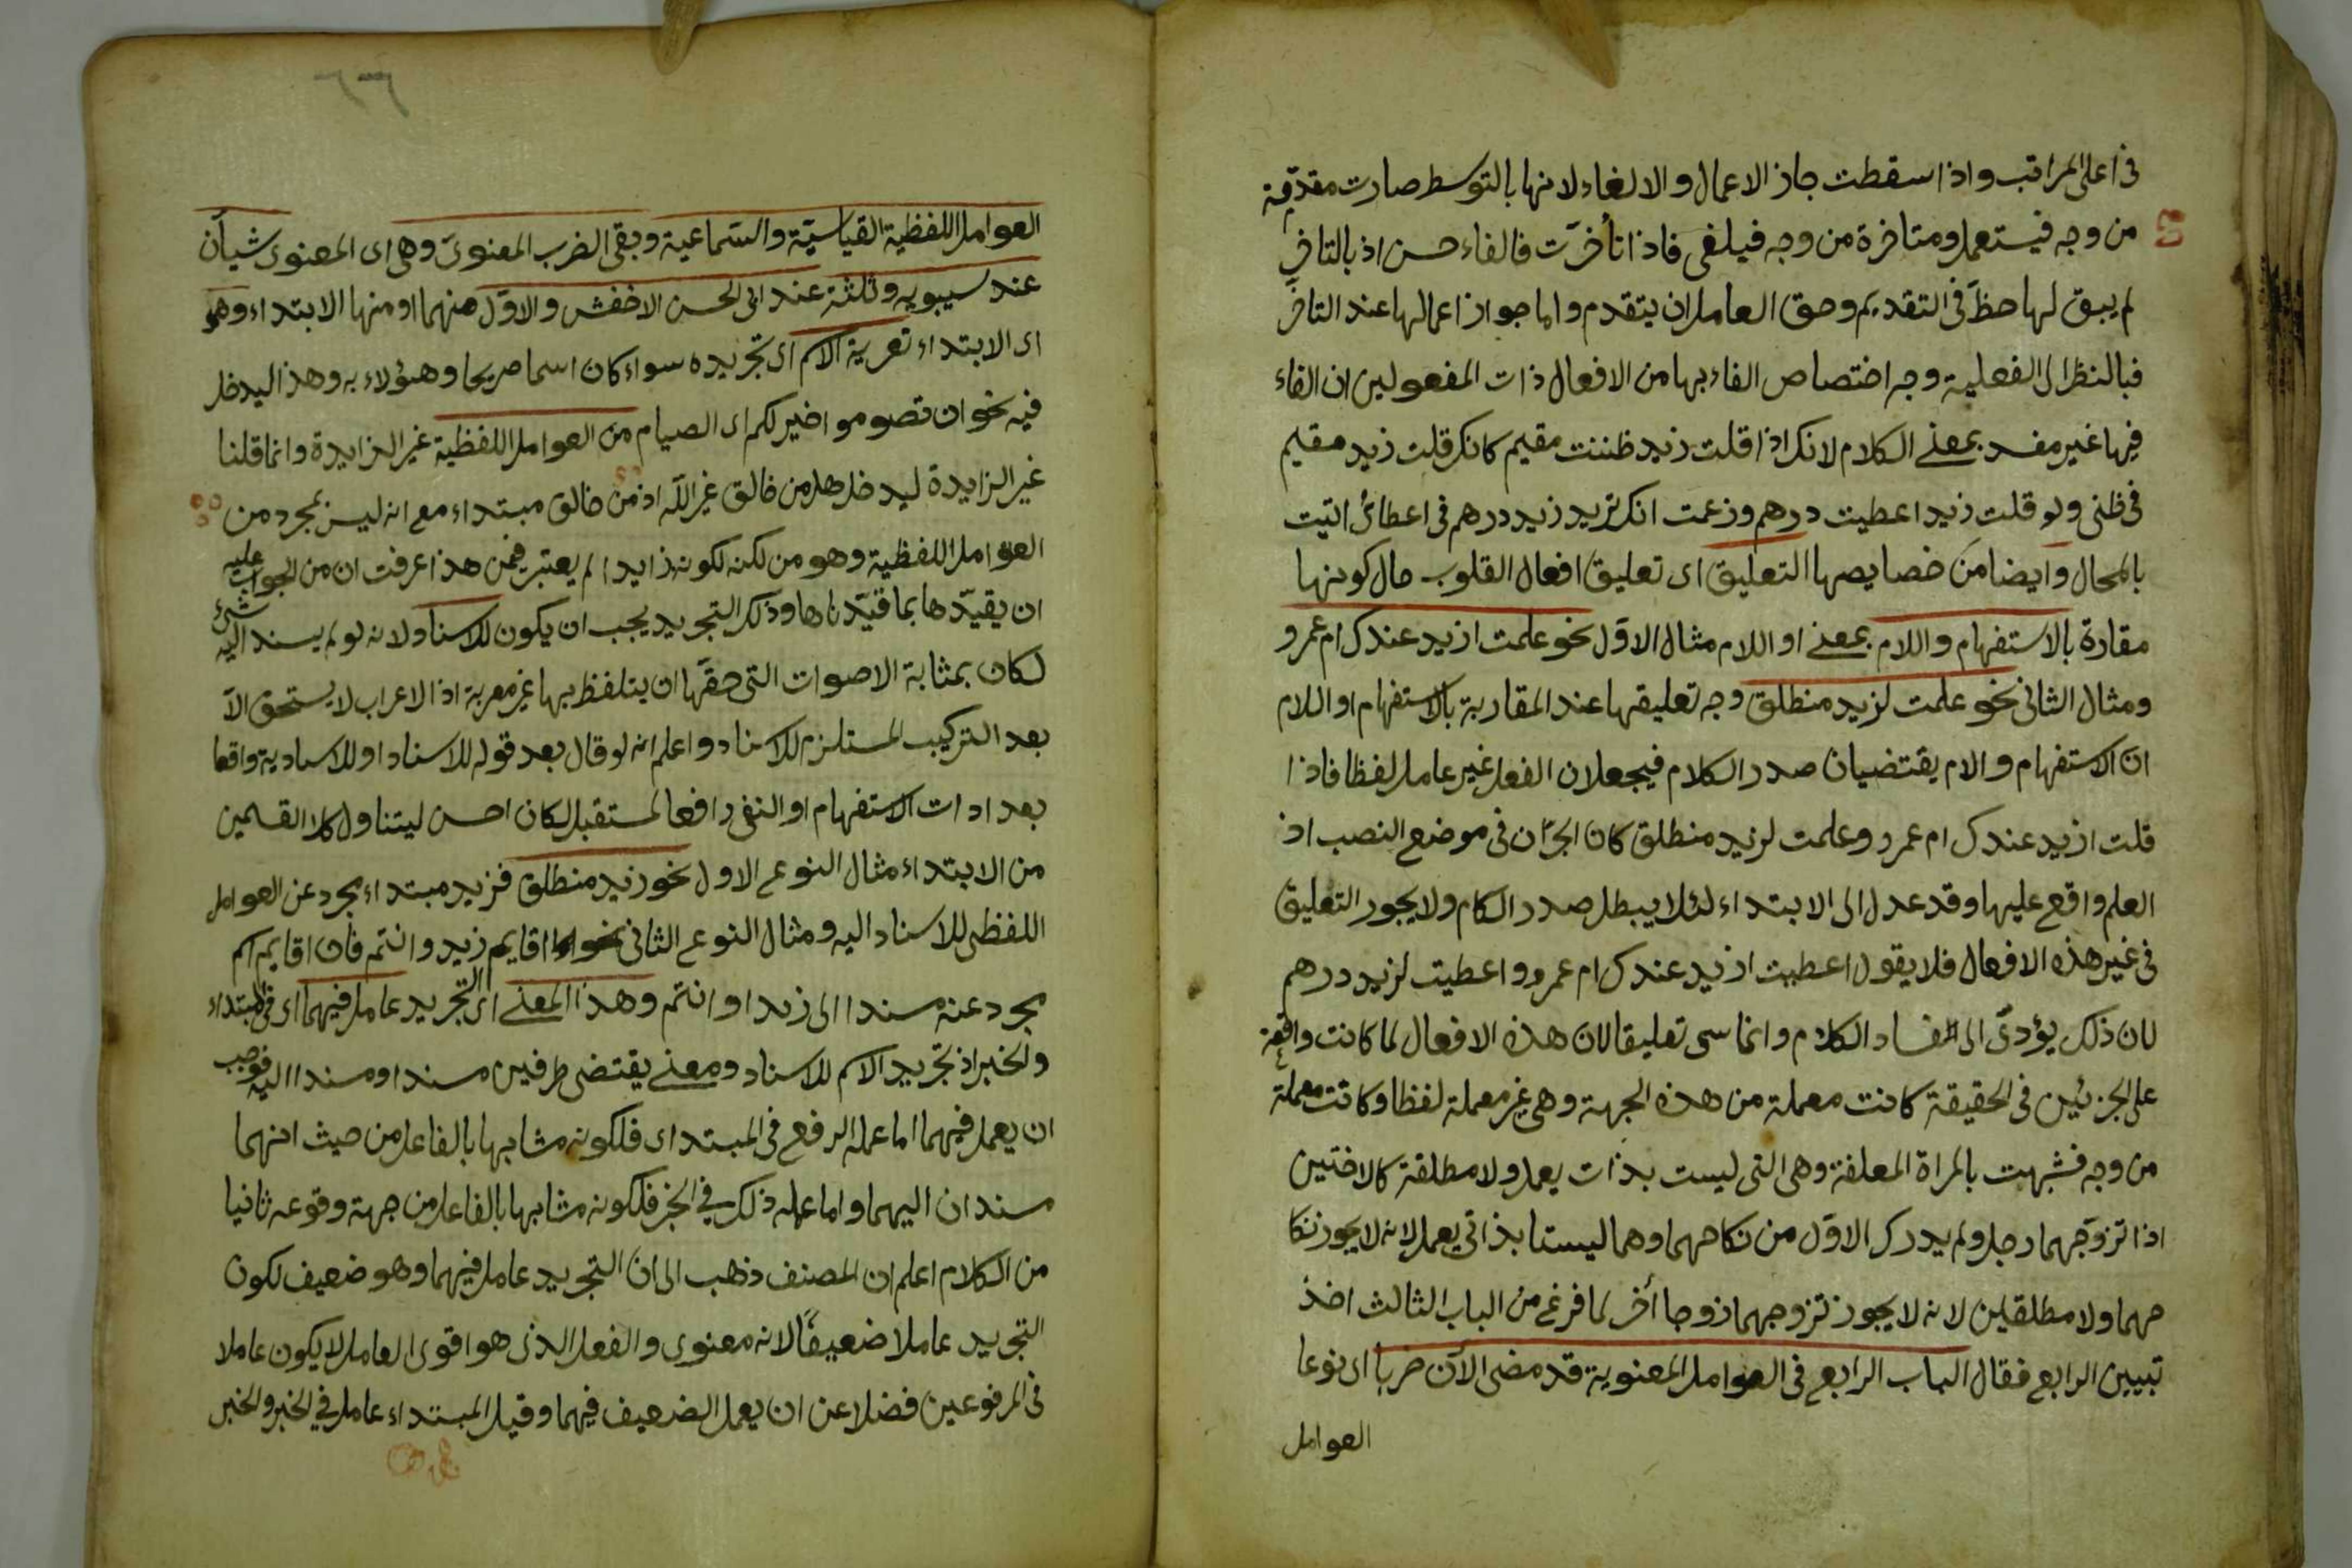 فى اعلى المراتب واذا سقطت جاز الاعمال والالغاء لانها بالتوسط صارت مقدمة
من وجه فيستعمل ومتاخرة من وجه فيلغى فاذا تأخرت فالغاء حسن اذ بالتاخر
لم يبق لها حظ فى التقديم وحق العامل ان يتقدم واما جواز اعمالها عند التاخر
فبالنظر الى الفعلية وجه اختصاص الغاء بها من الافعال ذات المفعولين ان الغاء
فيها غير مفسد بمعنى الكلام لانك اذا قلت زيد ظننت مقيم كانك قلت زيد مقيم
فى ظنى ولو قلت زيد اعطيت درهم وزعمت انك تريد زيد درهم فى اعطائى اتيت
بالمحال وايضا من خصايصها التعليق اى تعليق افعال القلوب حال كونها
مقارة بالاستفهام واللام بمعنى او اللام مثال الاول نحو علمت ازيد عندك ام عمرو
ومثال الثانى نحو علمت لزيد منطلق وجه تعليقها عند المقاربة بالاستفهام او اللام
ان الاستفهام والام يقتضيان صدر الكلام فيجعلان الفعل غير عامل لفظا فاذا
قلت ازيد عندك ام عمرو وعلمت لزيد منطلق كان الجزان فى موضع النصب اذ
العلم واقع عليها وقد عدل الى الابتداء لئلا يبطل صدر الكام ولا يجوز التعليق
فى غير هذه الافعال فلا يقول اعطيت ازيد عندك ام عمرو واعطيت لزيد درهم
لان ذلك يؤدى الى الفساد الكلام وانما سمى تعليقا لان هذه الافعال لما كانت واقعة
على الجزئين فى الحقيقة كانت معملة من هذه الجهة وهى غير معملة لفظا وكانت معملة
من وجه فشبهت بالمراة المعلقة وهى التى ليست بذات يعل ولا مطلقة كالاختين
اذا تزوجهما رجل ولم يدرك الاول من نكاحهما وهما ليستا بذاتى يعمل لانه لا يجوز نكا
حهما ولا مطلقين لانه لا يجوز تزوجهما زوجا أخر لما فرغ من الباب الثالث اخذ
تبيين الرابع فقال الباب الرابع فى العوامل المعنوية قد مضى الآن ضربا اى نوعا
العوامل
العوامل اللفظية القياسية والسماعية وبقى الضرب المعنوى وهى اى المعنوى شيأن
عند سيبويه وثلثة عند ابى الحسن الاخفش والاول منهما او منها الابتداء وهو
اى الابتداء تعرية الاسم اى تجريده سواء كان اسما صريحا وهؤلاء به وهذا ليدخل
فيه نحو ان تصوموا خير لكم اى الصيام من العوامل اللفظية غير الزايدة وانما قلنا
غير الزايدة ليدخل هل من خالق غير الله اذ من خالق مبتداء مع انه ليس بمجرد من
العوامل اللفظية وهو من لكنه لكونه زايدا لم يعتبر فمن هذا عرفت ان من الجواب عليه
ان يقيدها بما قيدناها وذلك التجريد يجب ان يكون للاسناد لانه لو لم يسند اليه شئ
لكان بمثابة الاصوات التى حقها ان يتلفظ بها غير معربة اذ الاعراب لا يستحق الا
بعد التركيب المستلزم للاسناد واعلم انه لو قال بعد قوله للاسناد او للاسنادية واقعا
بعد ادات الاستفهام او النفى رافعا لمستقبل لكان احسن ليتناول كلا القسمين
من الابتداء مثال النوع الاول نحو زيد منطلق فزيد مبتداء مجرد عن العوامل
اللفظى للاسناد اليه ومثال النوع الثانى نحو اقايم زيد وانتم فان اقايم اسم
مجرد عنه مسندا الى زيد او انتم وهذا المعنى اى التجريد عامل فيهما اى فى المبتداء
والخبر اذ تجريد الاسم للاسناد ومعنى يقتضى طرفين مسندا ومسندا اليه فوجب
ان يعمل فيهما اما عمله الرفع فى المبتداى فلكونه مشابها بالفاعل من حيث انهما
مسندان اليهما واما عمله ذلك فى الخبر فلكونه مشابها بالفاعل من جهة وقوعه ثانيا
من الكلام اعلم ان المصنف ذهب الى ان التجريد عامل فيهما وهو ضعيف لكون
التجريد عاملا ضعيفا لانه معنوى والفعل الذى هو اقوى العامل لا يكون عاملا
فى المرفوعين فضلا عن ان يعمل الضعيف فيهما وقيل المبتداء عامل فى الخبر والخبر